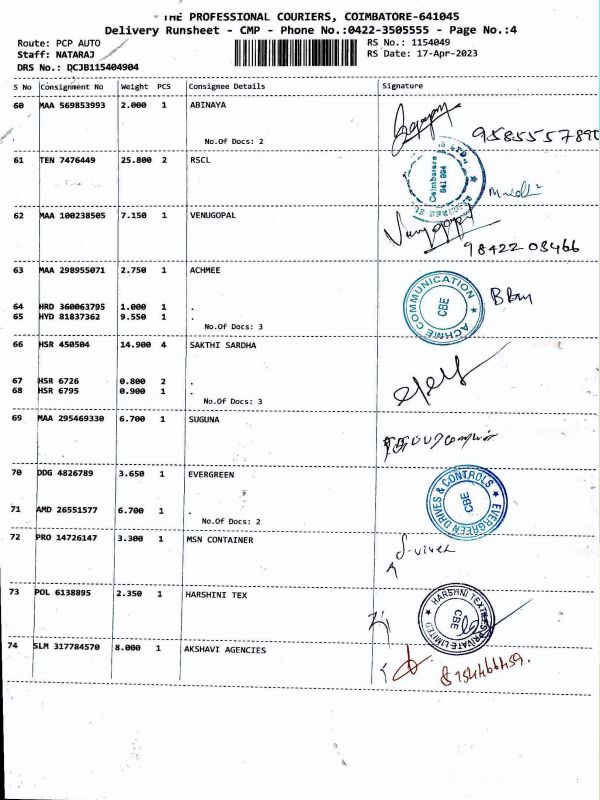 THE PROFESSIONAL COURIERS, COIMBATORE-641045
Delivery Runsheet - CMP - Phone No.:0422-3505555 - Page No.:4
Route: PCP AUTO
RS No.: 1154049
Staff: NATARAJ
RS Date: 17-Apr-2023
DRS No.: QCJB115404904
S No Consignment No Weight PCS Consignee Details Signature
60 MAA 569853993 2.000 1 ABINAYA
No.Of Docs: 2
9585557890
61 TEN 7476449 25.800 2 RSCL
Coimbatore 641 004
62 MAA 100238505 7.150 1 VENUGOPAL
Venugopal
98422 03466
63 MAA 298955071 2.750 1 ACHMEE
ACHME COMMUNICATION ★ CBE
64 HRD 360063795 1.000 1 .
65 HYD 81837362 9.550 1 .
No.Of Docs: 3
66 HSR 450504 14.900 4 SAKTHI SARDHA
67 HSR 6726 0.800 2 .
68 HSR 6795 0.900 1 .
No.Of Docs: 3
69 MAA 295469330 6.700 1 SUGUNA
70 DDG 4826789 3.650 1 EVERGREEN
EVERGREEN DRIVES & CONTROLS ★ CBE
71 AMD 26551577 6.700 1 .
No.Of Docs: 2
72 PRO 14726147 3.300 1 MSN CONTAINER
73 POL 6138895 2.350 1 HARSHINI TEX
HARSHNI TEXTILES PRIVATE LIMITED ★ CBE
74 SLM 317784570 8.000 1 AKSHAVI AGENCIES